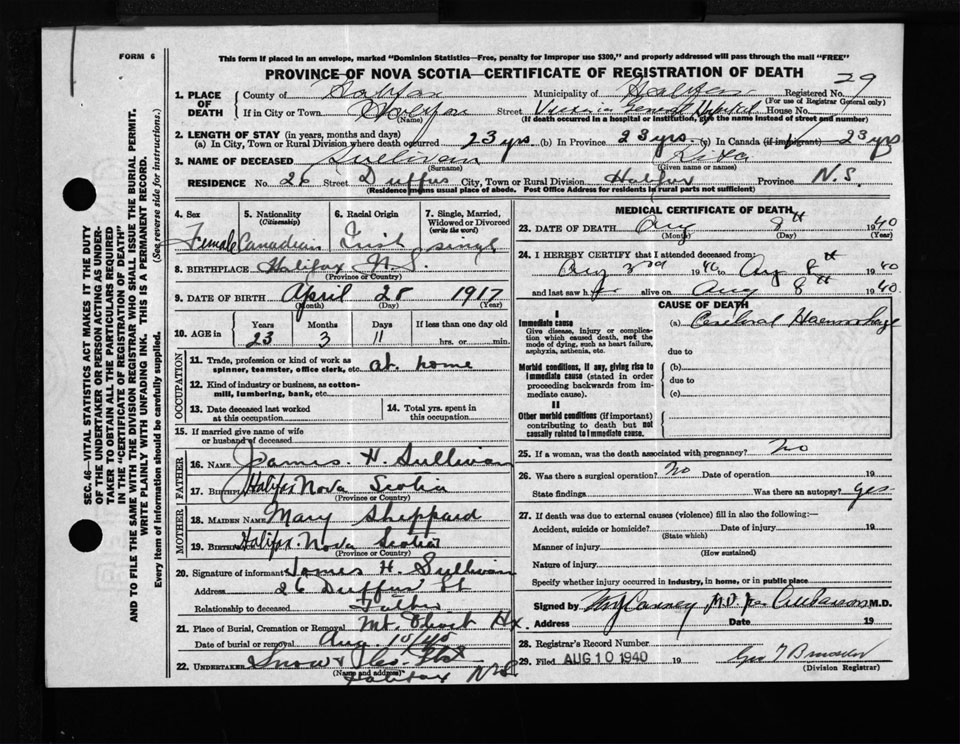 FORM 6
This form if placed in an envelope, marked "Dominion Statistics—Free, penalty for improper use $300," and properly addressed will pass through the mail "FREE"
PROVINCE OF NOVA SCOTIA—CERTIFICATE OF REGISTRATION OF DEATH
29
1. PLACE OF DEATH
County of Halifax Municipality of Halifax Registered No.
(For use of Registrar General only)
If in City or Town Halifax Street Victoria General Hospital House No.
(Name) (If death occurred in a hospital or institution, give the name instead of street and number)
2. LENGTH OF STAY (in years, months and days)
(a) In City, Town or Rural Division where death occurred 23 yrs. (b) In Province 23 yrs. (c) In Canada (if immigrant) 23 yrs
3. NAME OF DECEASED Sullivan Rita
(Surname) (Given name or names)
RESIDENCE No. 26 Street Duffus City, Town or Rural Division Halifax Province N.S.
(Residence means usual place of abode. Post Office Address for residents in rural parts not sufficient)
4. Sex Female
5. Nationality (Citizenship) Canadian
6. Racial Origin Irish
7. Single, Married, Widowed or Divorced (write the word) single
8. BIRTHPLACE Halifax N.S.
(Province or Country)
9. DATE OF BIRTH April 28 1917
(Month) (Day) (Year)
10. AGE in Years 23 Months 3 Days 11 If less than one day old hrs. or min.
OCCUPATION
11. Trade, profession or kind of work as spinner, teamster, office clerk, etc. at home
12. Kind of industry or business, as cotton-mill, lumbering, bank, etc.
13. Date deceased last worked at this occupation
14. Total yrs. spent in this occupation
15. If married give name of wife or husband of deceased
FATHER
16. NAME James H. Sullivan
17. Birthplace Halifax Nova Scotia
(Province or Country)
MOTHER
18. MAIDEN NAME Mary Sheppard
19. Birthplace Halifax Nova Scotia
(Province or Country)
20. Signature of informant James H. Sullivan
Address 26 Duffus St
Relationship to deceased Father
21. Place of Burial, Cremation or Removal Mt. Olivet Hx.
Date of burial or removal Aug. 10/40
22. UNDERTAKER Snow & Co.
(Name and address) Halifax N.S.
MEDICAL CERTIFICATE OF DEATH
23. DATE OF DEATH Aug 8th 1940
(Month) (Day) (Year)
24. I HEREBY CERTIFY that I attended deceased from:
Aug 3rd 1940 to Aug 8th 1940
and last saw her alive on Aug 8th 1940.
CAUSE OF DEATH
I
Immediate cause (a) Cerebral Haemorrhage
Give disease, injury or complication which caused death, not the mode of dying, such as heart failure, asphyxia, asthenia, etc.
due to
Morbid conditions, if any, giving rise to immediate cause (stated in order proceeding backwards from immediate cause).
(b)
due to
(c)
II
Other morbid conditions (if important) contributing to death but not causally related to immediate cause.
25. If a woman, was the death associated with pregnancy? No
26. Was there a surgical operation? No Date of operation 19
State findings Was there an autopsy? yes
27. If death was due to external causes (violence) fill in also the following:—
Accident, suicide or homicide? Date of injury 19
(State which)
Manner of injury
(How sustained)
Nature of injury
Specify whether injury occurred in industry, in home, or in public place
Signed by M.D. M.D.
Address Date 19
28. Registrar's Record Number
29. Filed AUG 10 1940 19
(Division Registrar)
SEC. 46—VITAL STATISTICS ACT MAKES IT THE DUTY
OF THE UNDERTAKER OR PERSON ACTING AS UNDER-
TAKER TO OBTAIN ALL THE PARTICULARS REQUIRED
IN THE "CERTIFICATE OF REGISTRATION OF DEATH"
AND TO FILE THE SAME WITH THE DIVISION REGISTRAR WHO SHALL ISSUE THE BURIAL PERMIT.
WRITE PLAINLY WITH UNFADING INK. THIS IS A PERMANENT RECORD.
Every item of information should be carefully supplied. (See reverse side for instructions.)